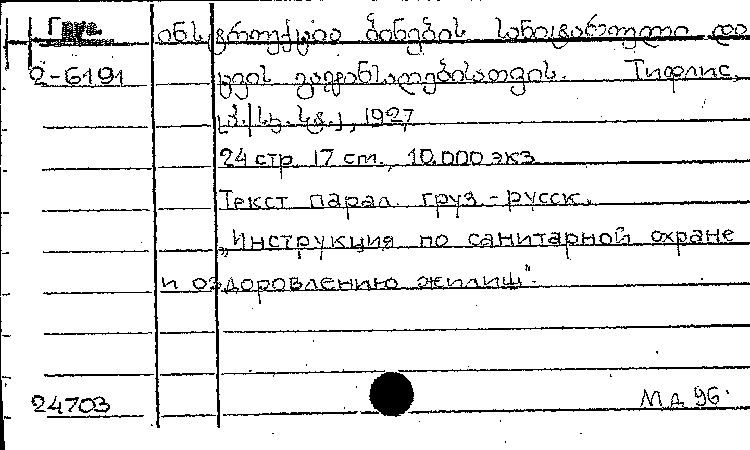 Груз.
2-6191
ინსტრუქცია ბინების სანიტარული და
ცვის გაჯანსაღებისათვის. Тифлис,
1927.
24 стр. 17 см., 10.000 экз
Текст парал. груз-русск.
„Инструкция по санитарной охране
и оздоровлению жилищ".
24703
М Д 96.